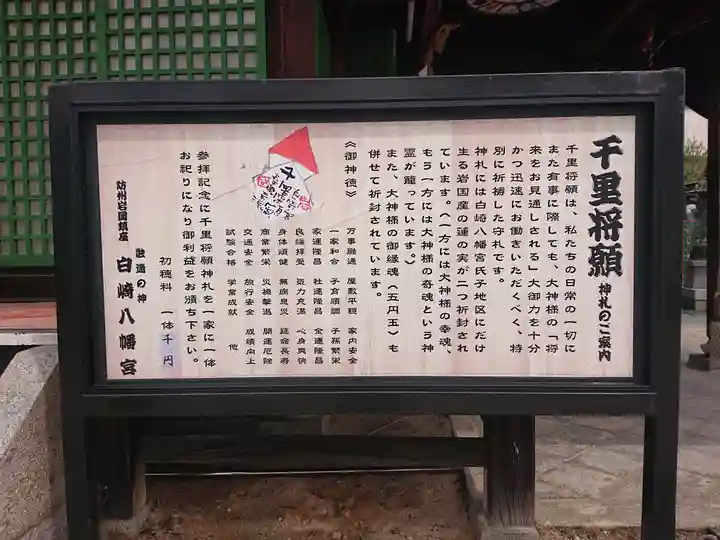 千里将願 神札のご案内
千里将願は、私たちの日常の一切に
また有事に際しても、大神様の「将
来をお見通しされる」大御力を十分
かつ迅速にお働きいただくべく、特
別に祈祷した守札です。
神札には白崎八幡宮氏子地区にだけ
生る岩国産の蓮の実が二つ祈封され
ています。（一方には大神様の幸魂、
もう一方には大神様の奇魂という神
霊が籠っています。）
また、大神様の御縁魂（五円玉）も
併せて祈封されています。
《御神徳》
万事融通 屋敷平穏 家内安全
一家和合 子育順調 子孫繁栄
家運隆昌 社運隆昌 金運隆昌
良縁拝受 活力充満 心身爽快
身体頑健 無病息災 延命長寿
商業繁栄 災禍撃退 開運厄除
交通安全 旅行安全 成績向上
試験合格 学業成就 他
千里将願
参拝記念に千里将願神札を一家に一体
お祀りになり御利益をお頒ち下さい。
初穂料 一体千円
融通の神
防州岩国鎮座 白崎八幡宮